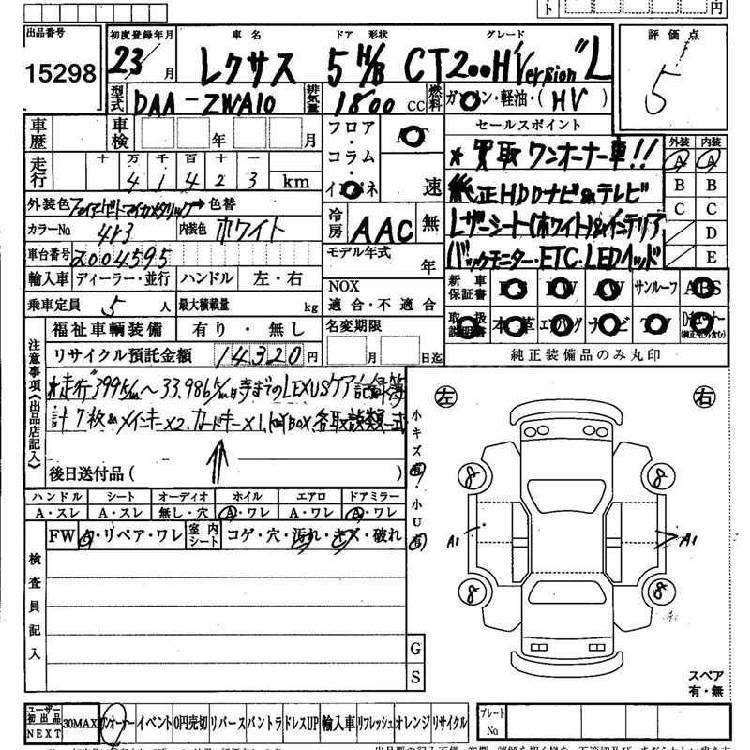 ト 円
出品番号 初度登録年月 車名 ドア 形状 グレード 評価点
15298 23/月 レクサス 5 H/B CT200H "Version" L 5
型式 DAA-ZWA10 排気量 1800 CC 燃料 ガソリン・軽油・(HV)
車歴 車検 年 月 フロア・コラム・インパネ AT 速 セールスポイント 外装 内装
走行 十 万 千 百 十 一
4 1 4 2 3 km
* 買取 ワンオーナー車!! A A
純正HDDナビ&テレビ B B
レザーシート(ホワイト)&インテリア C C
バックモニター・ETC・LEDヘッド D
E
外装色 ファイアーアゲートマイカメタリック → 色替
カラーNo 4R3 内装色 ホワイト 冷房 AAC 無
車台番号 2004595 モデル年式 年
輸入車 ディーラー・並行 ハンドル 左・右 NOX 適合・不適合
新車保証書 PS PW AW サンルーフ ABS
乗車定員 5 人 最大積載量 kg
取扱説明書 本革 エアバッグ ナビ TV
福祉車輌装備 有り・無し 名変期限 月 日迄 純正装備品のみ丸印
リサイクル預託金額 14320 円
注意事項(出品店記入)
*走行 399km〜33.986km時までのLEXUSケア記録簿
計7枚& メインキー×2. カードキー×1.
各取説類一式
後日送付品( )
小キズ有・小U有
左 右
ハンドル シート オーディオ ホイル エアロ ドアミラー
A・スレ A・スレ 無し・穴 A・ワレ A・ワレ A・ワレ
FW A・リペア・ワレ 室内シート コゲ・穴・汚れ・キズ・破れ
A1 A1
8 8
8 8
検査員記入
G
S
スペア
有・無
ユーザー初出品 NEXT 30MAX ワンオーナー イベント 0円売切 リバース パントラ ドレスUP 輸入車 リフレッシュ オレンジ リサイクル プレートNo